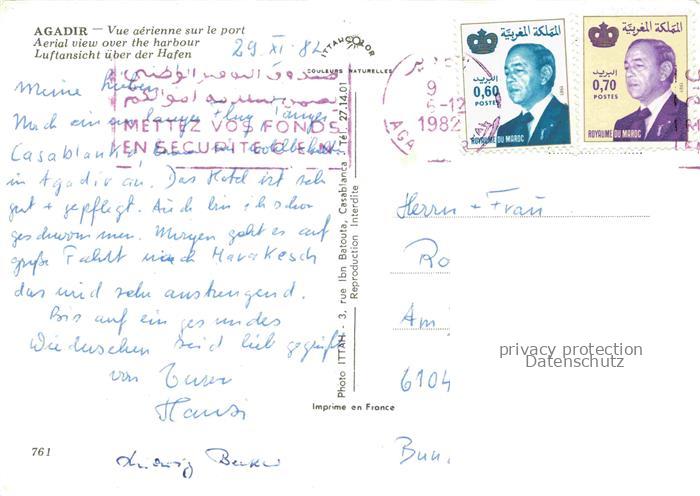 AGADIR — Vue aérienne sur le port
Aerial view over the harbour
Luftansicht über der Hafen
29. XI. 82
ITTAHCOLOR
COULEURS NATURELLES
صندوق التوفير الوطني
METTEZ VOS FONDS
EN SECURITE C.E.N.
9
6-12
1982
AGA
المملكة المغربية
البريد
0,60
POSTES
1981
ROYAUME DU MAROC
المملكة المغربية
البريد
0,70
POSTES
1981
ROYAUME DU MAROC
Meine Lieben
Nach ein
Casablanka
in Agadir an. Das Hotel ist sehr
gut + gepflegt. Auch bin ich schon
geschwommen. Morgen geht es auf
große Fahrt nach Marakesch
das wird sehr anstrengend.
Bis auf ein gesundes
Wiedersehen seid lieb gegrüßt
von Eurer
Hansi
Ludwig
Photo ITTAH - 3, rue Ibn Batouta, Casablanca / Tél. 27.14.01
Reproduction Interdite
Imprimé en France
761
Herrn + Frau
Ro
Am
6104
Bun
privacy protection
Datenschutz